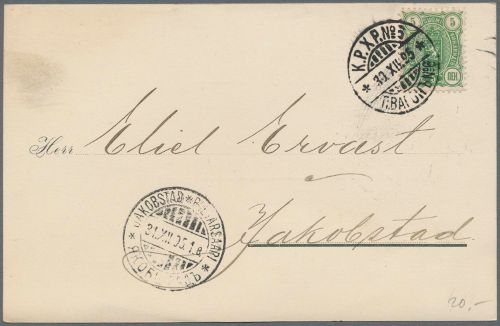 5 5
K.P.X.P.No3
30.XII.95
Herr Eliel Ervast
JAKOBSTAD * PIETARSAARI
31.XII.95.1.e
Jakobstad
20,-